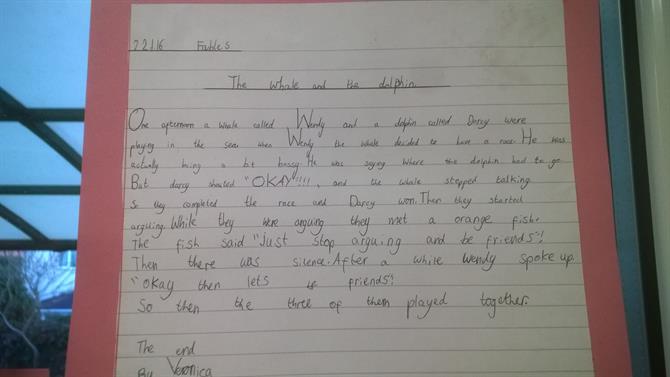 22.1.16 Fables
The whale and the dolphin.
One afternoon a whale called Wendy and a dolphin called Darcy were
playing in the sea, when Wendy the whale decided to have a race. He was
actually being a bit bossy. He was saying where the dolphin had to go.
But darcy shouted "OKAY"!!!!, and the whale stopped talking
So they completed the race and Darcy won. Then they started
arguing. While they were arguing they met a orange fish.
The fish said "Just stop arguing and be friends"!
Then there was silence. After a while Wendy spoke up.
"Okay then lets friends".
So then the three of them played together.
The end
By Veronica